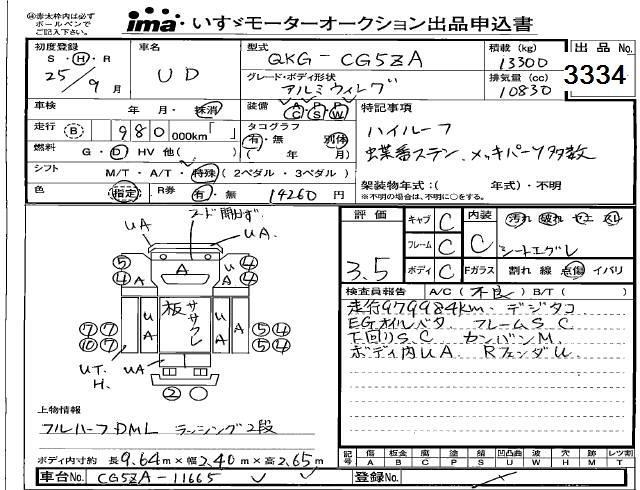 ㊟赤太枠内は必ず
ボールペンで
ご記入下さい。
ima いすゞモーターオークション出品申込書
初度登録
S・H・R
25/9月
車名
UD
型式
QKG-CG5ZA
グレード・ボディ形状
アルミウィング
積載(kg)
13300
排気量(cc)
10830
出品No.
3334
車検
年 月・抹消
装備
A P A
C S W
特記事項
ハイルーフ
蝶番ステン、メッキパーツ多数
走行
B 980,000km「 」
タコグラフ
有・無 別体
( 年 月)
燃料
G・D HV 他( )
シフト
M/T・A/T・特殊(2ペダル・3ペダル)
架装物年式:( 年式)・不明
※不明の場合は、不明に○をする。
色
指定
R券
有・無
14260円
評価
3.5
キャブ C
フレーム C
ボディ C
内装
C
汚れ 破れ
シートエグレ
Fガラス 割れ 線 点傷 イバリ
フード開けず
UA
UA.
A
板
ササクレ
UT.
H.
UA
検査員報告 A/C(不良)B/T( )
走行979984km. デジタコ
EGオイルベタ フレームS.C
下回りS.C カンバンM.
ボディ内UA RフェンダU
上物情報
フルハーフDML ラッシング2段
ボディ内寸約 長9.64m×幅2.40m×高2.65m
記号
傷 A
板金 B
腐 C
塗 P
錆 S
凹凸曲 U
波 W
穴 H
跡 M
レツ割 T
車台No. CG5ZA-11665
登録No.